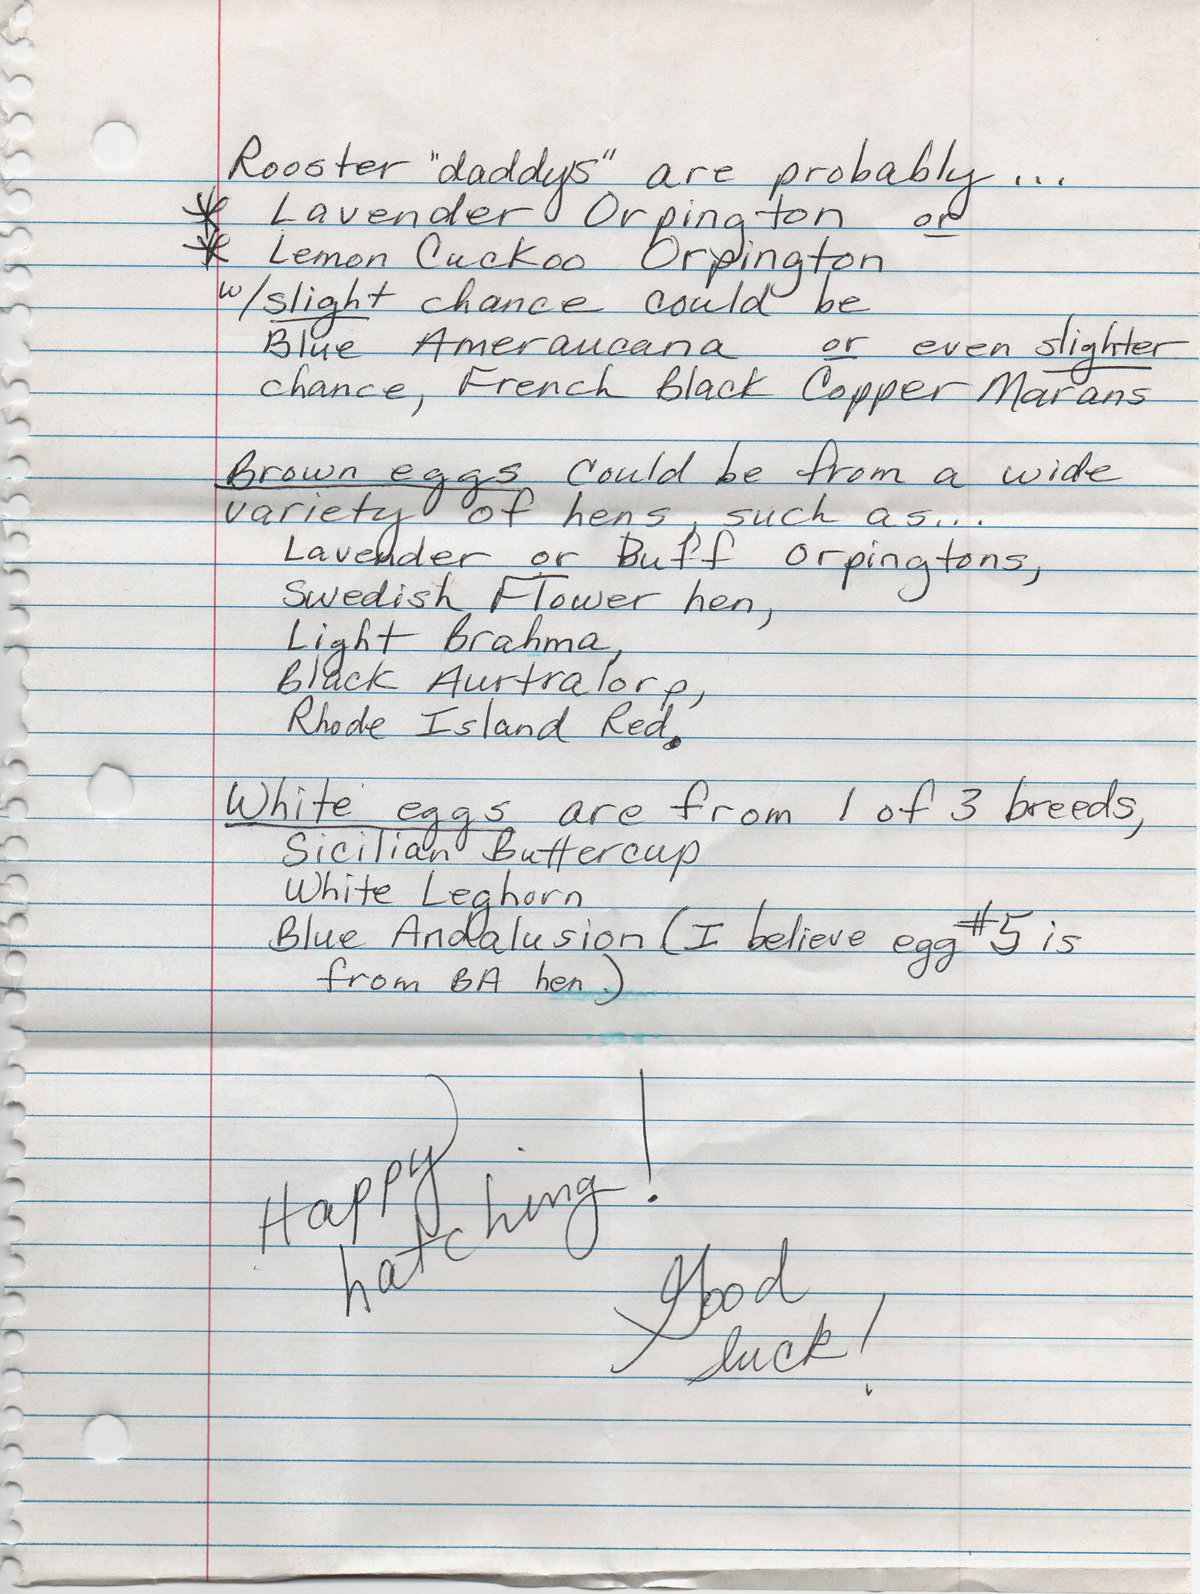 Rooster "daddys" are probably...
* Lavender Orpington or
* Lemon Cuckoo Orpington
w/slight chance could be
Blue Ameraucana or even slighter
chance, French Black Copper Marans
Brown eggs could be from a wide
variety of hens, such as...
Lavender or Buff Orpingtons,
Swedish Flower hen,
Light Brahma,
Black Aurtralorp,
Rhode Island Red.
White eggs are from 1 of 3 breeds,
Sicilian Buttercup
White Leghorn
Blue Andalusion (I believe egg #5 is
from BA hen.)
Happy
hatching!
Good
luck!